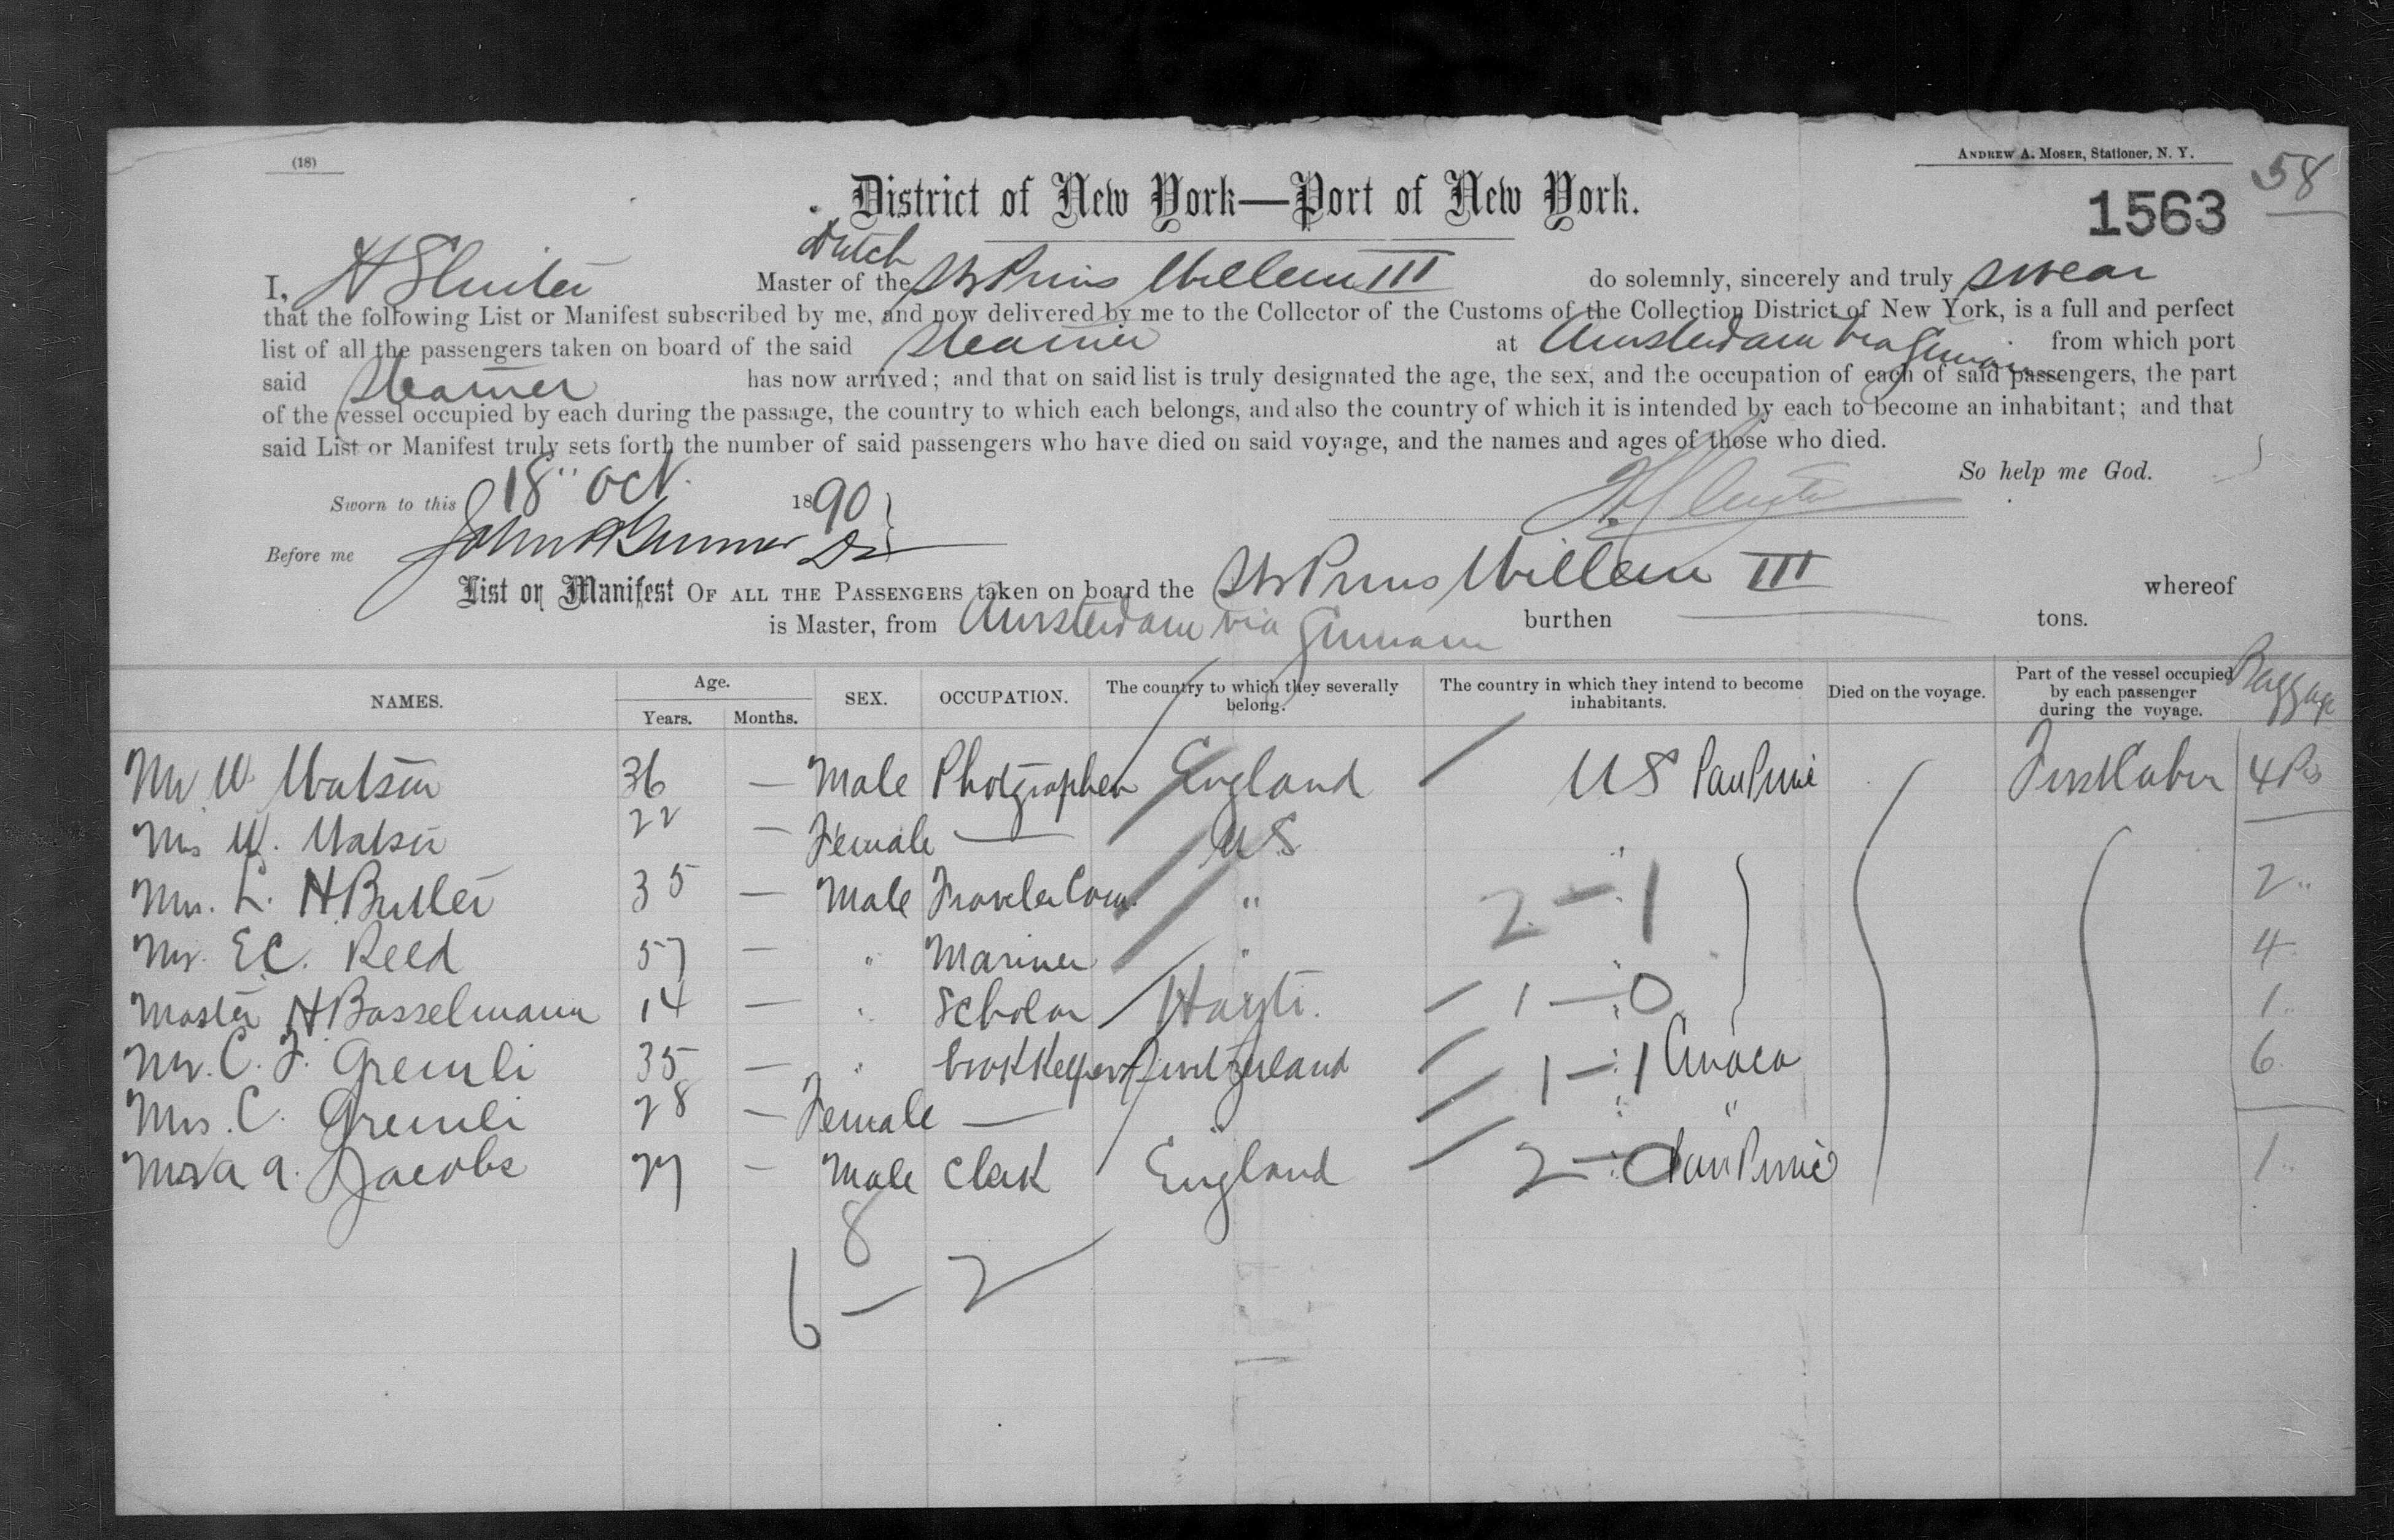 (18)
ANDREW A. MOSER, Stationer, N. Y.
58
District of New York—Port of New York.
1563
Dutch
I, H Sluiter Master of the Str Prins Willem III do solemnly, sincerely and truly swear
that the following List or Manifest subscribed by me, and now delivered by me to the Collector of the Customs of the Collection District of New York, is a full and perfect
list of all the passengers taken on board of the said Steamer at Amsterdam via from which port
said Steamer has now arrived; and that on said list is truly designated the age, the sex, and the occupation of each of said passengers, the part
of the vessel occupied by each during the passage, the country to which each belongs, and also the country of which it is intended by each to become an inhabitant; and that
said List or Manifest truly sets forth the number of said passengers who have died on said voyage, and the names and ages of those who died.
So help me God.
Sworn to this 18" Oct. 1890
H Sluiter
Before me John
List or Manifest OF ALL THE PASSENGERS taken on board the Str Prins Willem III whereof
is Master, from Amsterdam via burthen tons.
NAMES. Age. Years. Months. SEX. OCCUPATION. The country to which they severally belong. The country in which they intend to become inhabitants. Died on the voyage. Part of the vessel occupied by each passenger during the voyage. Baggage
Mr W. Watson 36 — Male Photographer England US First Cabin 4 Ps
Mrs W. Watson 22 — Female — US "
Mr. L. H Butler 35 — Male Traveler Com. " 2 — 1 2 "
Mr. E.C. Reed 57 — " Mariner " " 4
Master H Basselmann 14 — " Scholar Hayti. 1 — 0 1 "
Mr. C. F. Gremli 35 — " Bookkeeper Switzerland 1 — 1 Curaca 6
Mrs. C. Gremli 28 — Female — " " "
Mr A. A. Jacobs 27 — Male Clerk England 2 — 0 1 "
8
6 — 2